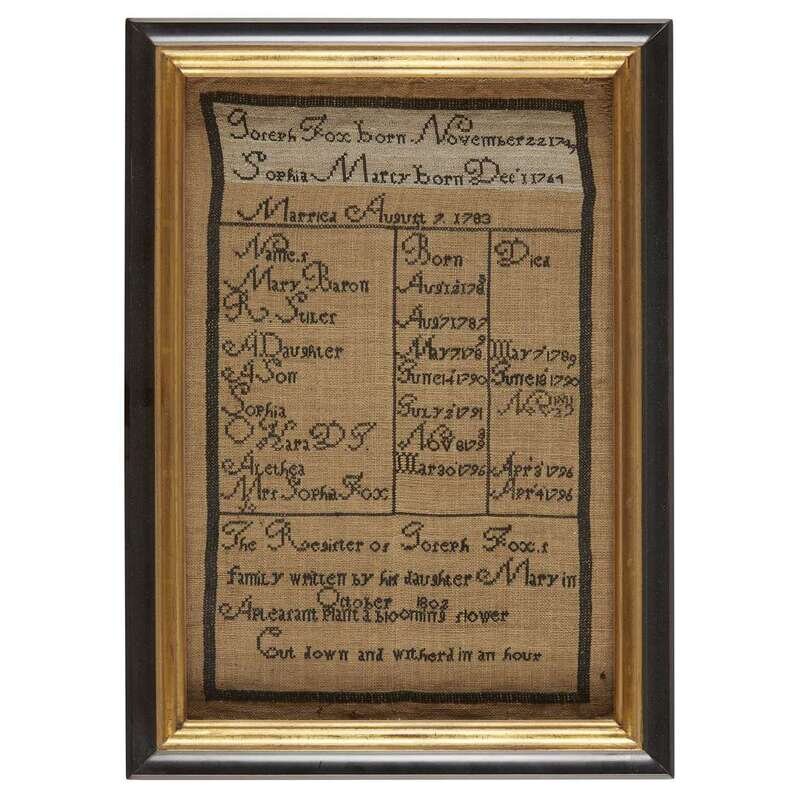 Joseph Fox born November 22 1749
Sophia Marcy born Decr 1 1764
Married August 7. 1783
Names Born Died
Mary Baron Augt 12 178
R. Stiler Augt 7 1787
A Daughter May 7 1789 May 7 1789
A Son June 14 1790 June 18 1790
Sophia July 2 1791 Nov
O Hara D J. Nov 8 179
Alethea Mar 30 1796 Apr 3 1796
Mrs Sophia Fox Apr 4 1796
The Register of Joseph Fox,s
family written by his daughter Mary in
October 1802
A pleasant plant a blooming flower
Cut down and witherd in an hour